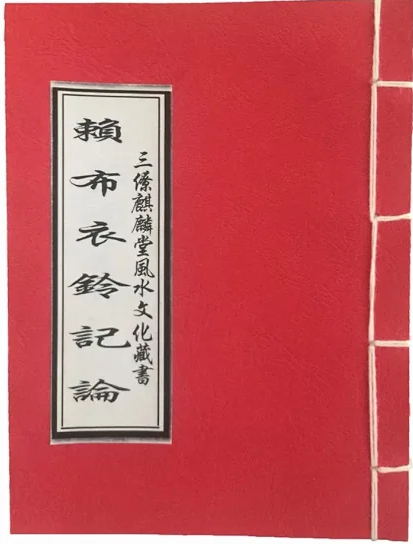 三僚麒麟堂風水文化藏書
賴布衣鈴記論